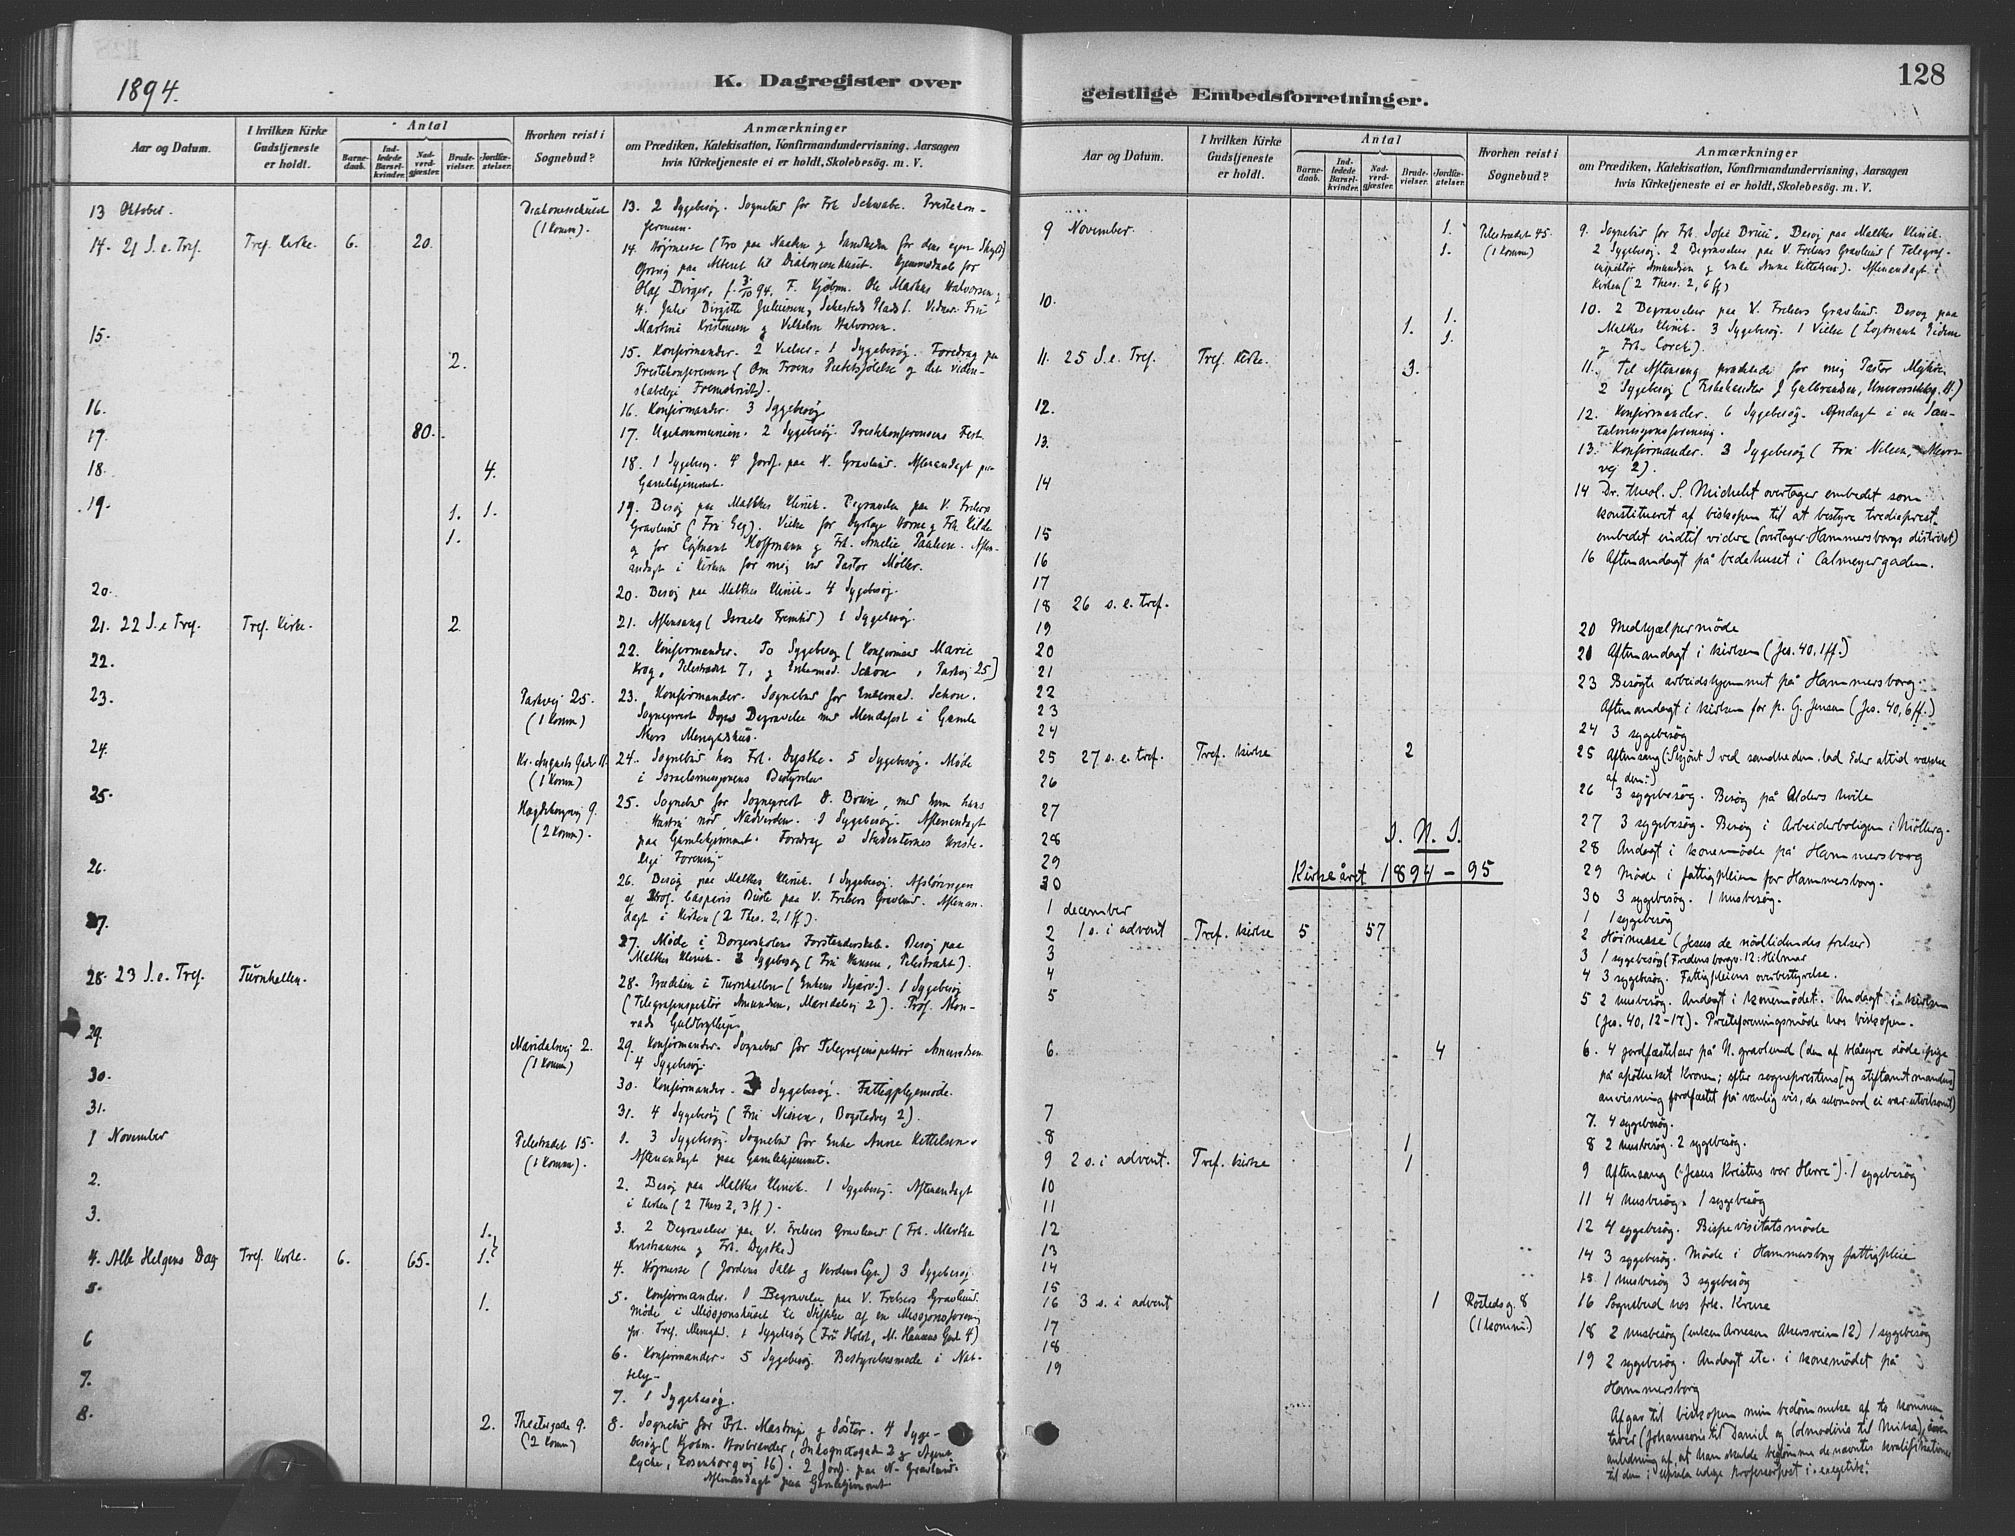 1894.
K. Dagregister over
Aar og Datum.
I hvilken Kirke
Gudstjeneste
er holdt.
Antal
Barne-
daab.
Ind-
ledede
Barsel-
kvinder.
Nad-
verd-
gjæster.
Brude-
vielser.
Jordfæ-
stelser.
Hvorhen reist i
Sognebud?
Anmærkninger
om Prædiken, Katekisation, Konfirmandundervisning, Aarsagen
hvis Kirketjeneste ei er holdt, Skolebesög. m. V.
13 Oktober.
(1 Komm).
13. 2 Sygebesøg. Sognebud for Frk Schwabe. Prestekon-
ferensen.
14. 21 S. e. Tref. Tref. Kirke. 6. 20.
14. Højmesse (Tro paa Naaden og Sandheden for dens egen Skyld)
Ofring paa Alteret til Diakonissehuset. Hjemmedaab for
Olaf Birger, f. 3/10 94, F. Kjøbm. Ole Markus Halvorsen og
Martine Kristensen og Vilhelm Halvorsen.
15. 2.
15. Konfirmander. 2 Vielser. 1 Sygebesøg. Foredrag paa
Prestekonferensen (Om Troens og det viden-
skabelige Fremskridt).
16.
16. Konfirmander. 3 Sygebesøg
17. 80.
17. Ugekommunion. 2 Sygebesøg. Prestekonferensens Fest.
18. 4.
18. 1 Sygebesøg. 4 Jordf. paa N. Gravlund. Aftenandagt paa
Gamlehjemmet.
19. 1. 1.
1.
19. Besøg paa Malthes Klinik. Begravelse paa V. Frelsers
Gravlund (Fru Geg). Vielse for Dyrlæge Horne og Frk Kilde
og for Løjtnant Hoffmann og Frk. Amelie Paulsen. Aften-
andagt i Kirken for mig ved Pastor Møller.
20.
20. Besøg paa Malthes Klinik. 4 Sygebesøg.
21. 22 S. e Tref. Tref. Kirke. 2
21. Aftensang (Israels Fremtid) 1 Sygebesøg.
22.
22. Konfirmander. To Sygebesøg (Konfirmand Marie
Krog, Pilestrædet 7, og Enkemad. Schou, Parkvej 25]
23. Parkvej 25.
(1 Komm)
23. Konfirmander. Sognebud for Enkemad. Schou.
Sogneprest Begravelse med i Gamle
Akers Menighedshus.
24. Kr. Augusts Gade 11.
(1 Komm)
24. Sognebud hos Frk. Dysthe. 5 Sygebesøg. Møde
i Israelsmissionens Bestyrelse
25. 9.
(2 Komm).
25. Sognebud for Sogneprest O. Bruun, med ham hans
Hustru nød Nadverden. 1 Sygebesøg. Aftenandagt
paa Gamlehjemmet. Foredrag i Studenternes Kriste-
lige Forening.
26.
26. Besøg paa Malthes Klinik. 1 Sygebesøg. Afsløringen
af Prof. Casparis Buste paa V. Frelsers Gravlund. Aftenan-
dagt i Kirken (2 Thes. 2, 1 ff).
27.
27. Møde i Borgerskolens Forstanderskab. Besøg paa
Malthes Klinik. 3 Sygebesøg (Fru Hansen, Pilestrædet).
28. 23 S. e. Tref. Turnhallen.
28. Prædiken i Turnhallen (Enkens Skjærv). 1 Sygebesøg
(Telegrafinspektør Amundsen, Maridalsvej 2). Prof. Mon-
rads Guldbryllup.
29. Maridalsvej 2.
(1 Komm)
29. Konfirmander. Sognebud for Telegrafinspektør Amundsen
4 Sygebesøg.
30.
30. Konfirmander. 3 Sygebesøg. Fattigplejemøde.
31.
31. 4 Sygebesøg (Fru Nissen, Bogstadvej 2).
1 November Pilestrædet 15.
(1 Komm).
1. 3 Sygebesøg. Sognebud for Enke Anne Kittelsen.
Aftenandagt paa Gamlehjemmet.
2.
2. Besøg paa Malthes Klinik. 1 Sygebesøg. Aftenandagt
i Kirken (2 Thess 2, 3 ff).
3. 1.
1.
3. 2 Begravelser paa V. Frelsers Gravlund (Frk. Marthe
Kristiansen og Frk. Dysthe)
4. Alle Helgens Dag Tref. Kirke. 6. 65.
4. Højmesse (Jordens Salt og Verdens Lys.) 3 Sygebesøg
5. 1.
5. Konfirmander. 1 Begravelse paa V. Frelsers Gravlund.
Møde i Missjonshuset til Stiftelse af en Missjonsforening
for Tref. Menighed. 1 Sygebesøg (Fru Holst, M. Hansens Gade 4)
6
6. Konfirmander. 5 Sygebesøg. Bestyrelsesmøde i Nat-
7.
7. 1 Sygebesøg.
8. 2. Theatergade 9.
(2 Komm)
8. Sognebud for Frk. Mastrup og Søster. 4 Syge-
besøg (Kjøbm. Inkognitogade 2 og Agnes
Lyche, Rosenborgvej 16). 2 Jordf. paa N. Gravlund.
Aftenandagt paa Gamlehjemmet
128
geistlige Embedsforretninger.
Aar og Datum.
I hvilken Kirke
Gudstjeneste
er holdt.
Antal
Barne-
daab.
Ind-
ledede
Barsel-
kvinder.
Nad-
verd-
gjæster.
Brude-
vielser.
Jordfæ-
stelser.
Hvorhen reist i
Sognebud?
Anmærkninger
om Prædiken, Katekisation, Konfirmandundervisning, Aarsagen
hvis Kirketjeneste ei er holdt, Skolebesög. m. V.
9 November. 1. Pilestrædet 45.
1. (1 Komm)
9. Sognebud for Frk. Sofie Bruun. Besøg paa Malthes Klinik.
2 Sygebesøg. 2 Begravelser paa V. Frelsers Gravlund (Telegraf-
inspektør Amundsen og Enke Anne Kittelsen). Aftenandagt i
Kirken (2 Thess. 2, 6 ff)
10. 1. 1.
1.
10. 2 Begravelser paa V. Frelsers Gravlund. Besøg paa
Malthes Klinik. 3 Sygebesøg. 1 Vielse (Løjtnant
og Frk. ).
11. 25 S. e. Tref. Tref. Kirke. 3.
11. Til Aftensang prædikede for mig Pastor
2 Sygebesøg ( J Gulbrandsen, Universitetsg. 11.)
12.
12. Konfirmander. 6 Sygebesøg. Andagt i en San-
talmissjonsforening.
13.
13. Konfirmander. 3 Sygebesøg (Fru Nilsen,
vej 2).
14
14 Dr. theol. S. Michelet overtager embedet som
konstitueret af biskopen til at bestyre trediaprest-
embedet indtil videre (overtager Hammersborgs distriket)
15
16
16 Aftenandagt på bedehuset i Calmeyergaden.
17
18 26 s. e. tref.
19
20
20 Medhjælpermöde
21
21 Aftenandagt i kirken (Jes. 40, 1 ff.)
22
23
23 Besögte arbeidshjemmet på Hammersborg.
Aftenandagt i kirken for p. G. Jensen (Jes. 40, 6 ff.)
24
24 3 sygebesög
25 27 s. e. tref. Tref. kirke 2
25 Aftensang (Skjönt I ved sandheden, lad Eder altid vække
af den:)
26
26 3 sygebesög. Besög på Alders hvile
27
27 3 sygebesög. Besög i Arbeiderboligen i Möllerg.
28
28 Andagt i konemöde på Hammersborg
29
29 Möde i fattigpleien for Hammersborg.
30
30 3 sygebesög. 1 husbesög.
I. N. J.
Kirkeåret 1894 – 95
1 december
1 1 sygebesög
2 1 s. i advent Tref. kirke 5 57
2 Höimesse (Jesus de nödlidendes frelser)
3
3 1 sygebesög (Fredensborgv. 12: Hilmar
4
4 3 sygebesög. Fattigpleiens overbestyrelse.
5
5 2 husbesög. Andagt i konemödet. Andagt i kirken
(Jes. 40, 12–17). Presteforeningsmöde hos biskopen.
6. 4
6. 4 jordfæstelser på N. gravlund (den af blåsyre döde pige
på apotheket Kronen; efter sogneprestens [og stiftamtmandens]
anvisning jordfæstet på vanlig vis, da selvmord ei var utvilsomt)
7
7. 4 sygebesög.
8 1
8 2 husbesög. 2 sygebesög.
9 2 s. i advent. Tref. kirke 1
9 Aftensang ("Jesus Kristus vor Herre"). 1 sygebesög
10
11
11 4 husbesög. 1 sygebesög
12
12 4 sygebesög. Bispevisitatsmöde
13
14
14 3 sygebesög. Möde i Hammersborg fattigpleie
15
15 1 husbesög 3 sygebesög
16 3 s. i advent 1 Rostedsg. 8
(1 komm.)
16 Sognebud hos frk. Kruse
17
18
18 2 husbesög (enken Arnesen Akersveien 12) 1 sygebesög
19
19 2 sygebesög. Andagt etc. i konemödet på
Hammersborg
Afgav til biskopen min bedömmelse af to kommen-
tarer (Johanssons til Daniel og Colmodins til Mika),
anledning af, at han skulde bedömme de nævntes kvalifikationer
til den i Upsala ledige professorpost i exegetik.